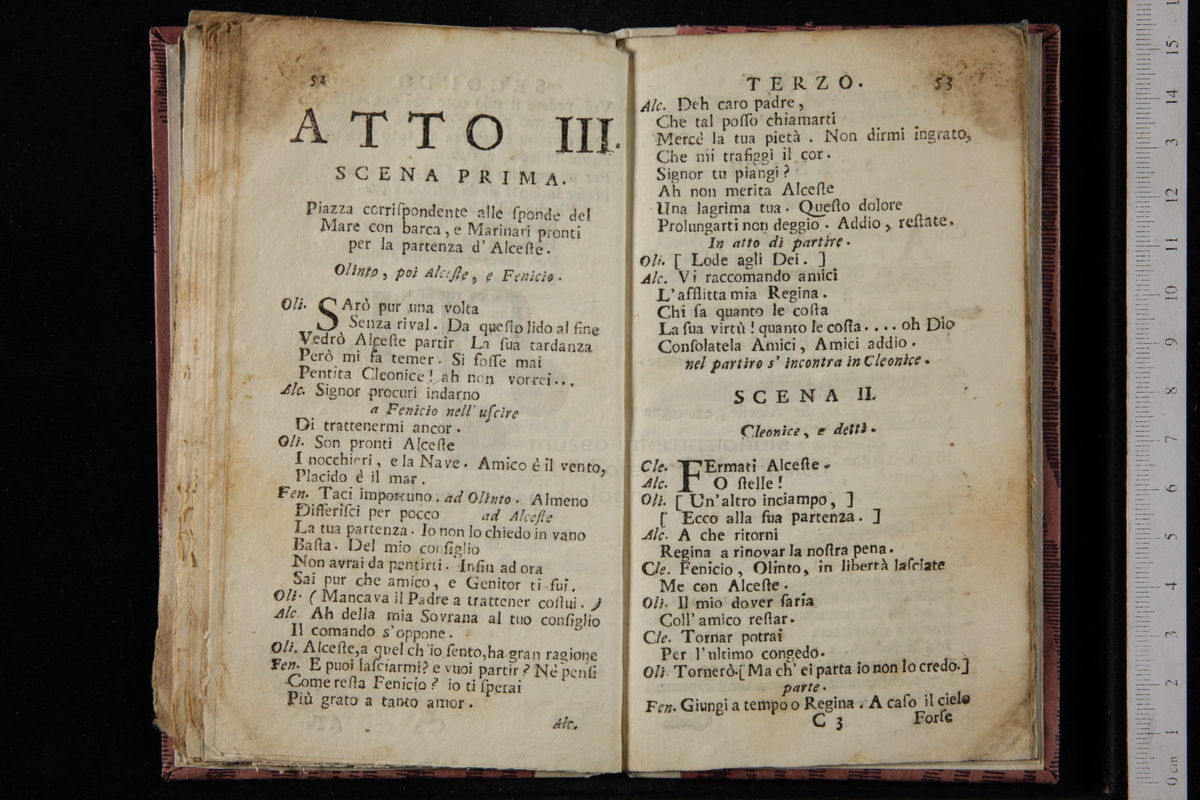 52
ATTO III.
SCENA PRIMA.
Piazza corriſpondente alle ſponde del
Mare con barca, e Marinari pronti
per la partenza d' Alceſte.
Olinto, poi Alceſte, e Fenicio.
Oli. SArò pur una volta
Senza rival. Da queſto lido al fine
Vedrò Alceſte partir La ſua tardanza
Però mi fa temer. Si foſſe mai
Pentita Cleonice! ah non vorrei...
Alc. Signor procuri indarno
a Fenicio nell' uſcire
Di trattenermi ancor.
Oli. Son pronti Alceſte
I nocchieri, e la Nave. Amico è il vento,
Placido è il mar.
Fen. Taci importuno. ad Olinto. Almeno
Differiſci per pocco ad Alceſte
La tua partenza. Io non lo chiedo in vano
Baſta. Del mio conſiglio
Non avrai da pentirti. Inſin ad ora
Sai pur che amico, e Genitor ti fui.
Oli. ( Mancava il Padre a trattener coſtui. )
Alc Ah della mia Sovrana al tuo conſiglio
Il comando s'oppone.
Oli. Alceſte,a quel ch'io ſento,ha gran ragione
Fen. E puoi laſciarmi? e vuoi partir? Nè penſi
Come reſta Fenicio? io ti ſperai
Più grato a tanto amor.
Alc.
TERZO. 53
Alc. Deh caro padre,
Che tal poſſo chiamarti
Mercè la tua pietà. Non dirmi ingrato,
Che mi trafiggi il cor.
Signor tu piangi?
Ah non merita Alceſte
Una lagrima tua. Queſto dolore
Prolungarti non deggio. Addio, reſtate.
In atto di partire.
Oli. [ Lode agli Dei. ]
Alc. Vi raccomando amici
L'afflitta mia Regina.
Chi ſa quanto le coſta
La ſua virtù! quanto le coſta.... oh Dio
Conſolatela Amici, Amici addio.
nel partiro s' incontra in Cleonice.
SCENA II.
Cleonice, e detti.
Cle. FErmati Alceſte.
Alc. O ſtelle!
Oli. [ Un'altro inciampo, ]
[ Ecco alla ſua partenza. ]
Alc. A che ritorni
Regina a rinovar la noſtra pena.
Cle. Fenicio, Olinto, in libertà laſciate
Me con Alceſte.
Oli. Il mio dover ſaria
Coll' amico reſtar.
Cle. Tornar potrai
Per l'ultimo congedo.
Oli Tornerò.[ Ma ch' ei parta io non lo credo.]
parte.
Fen. Giungi a tempo o Regina. A caſo il cielo
C 3 Forſe